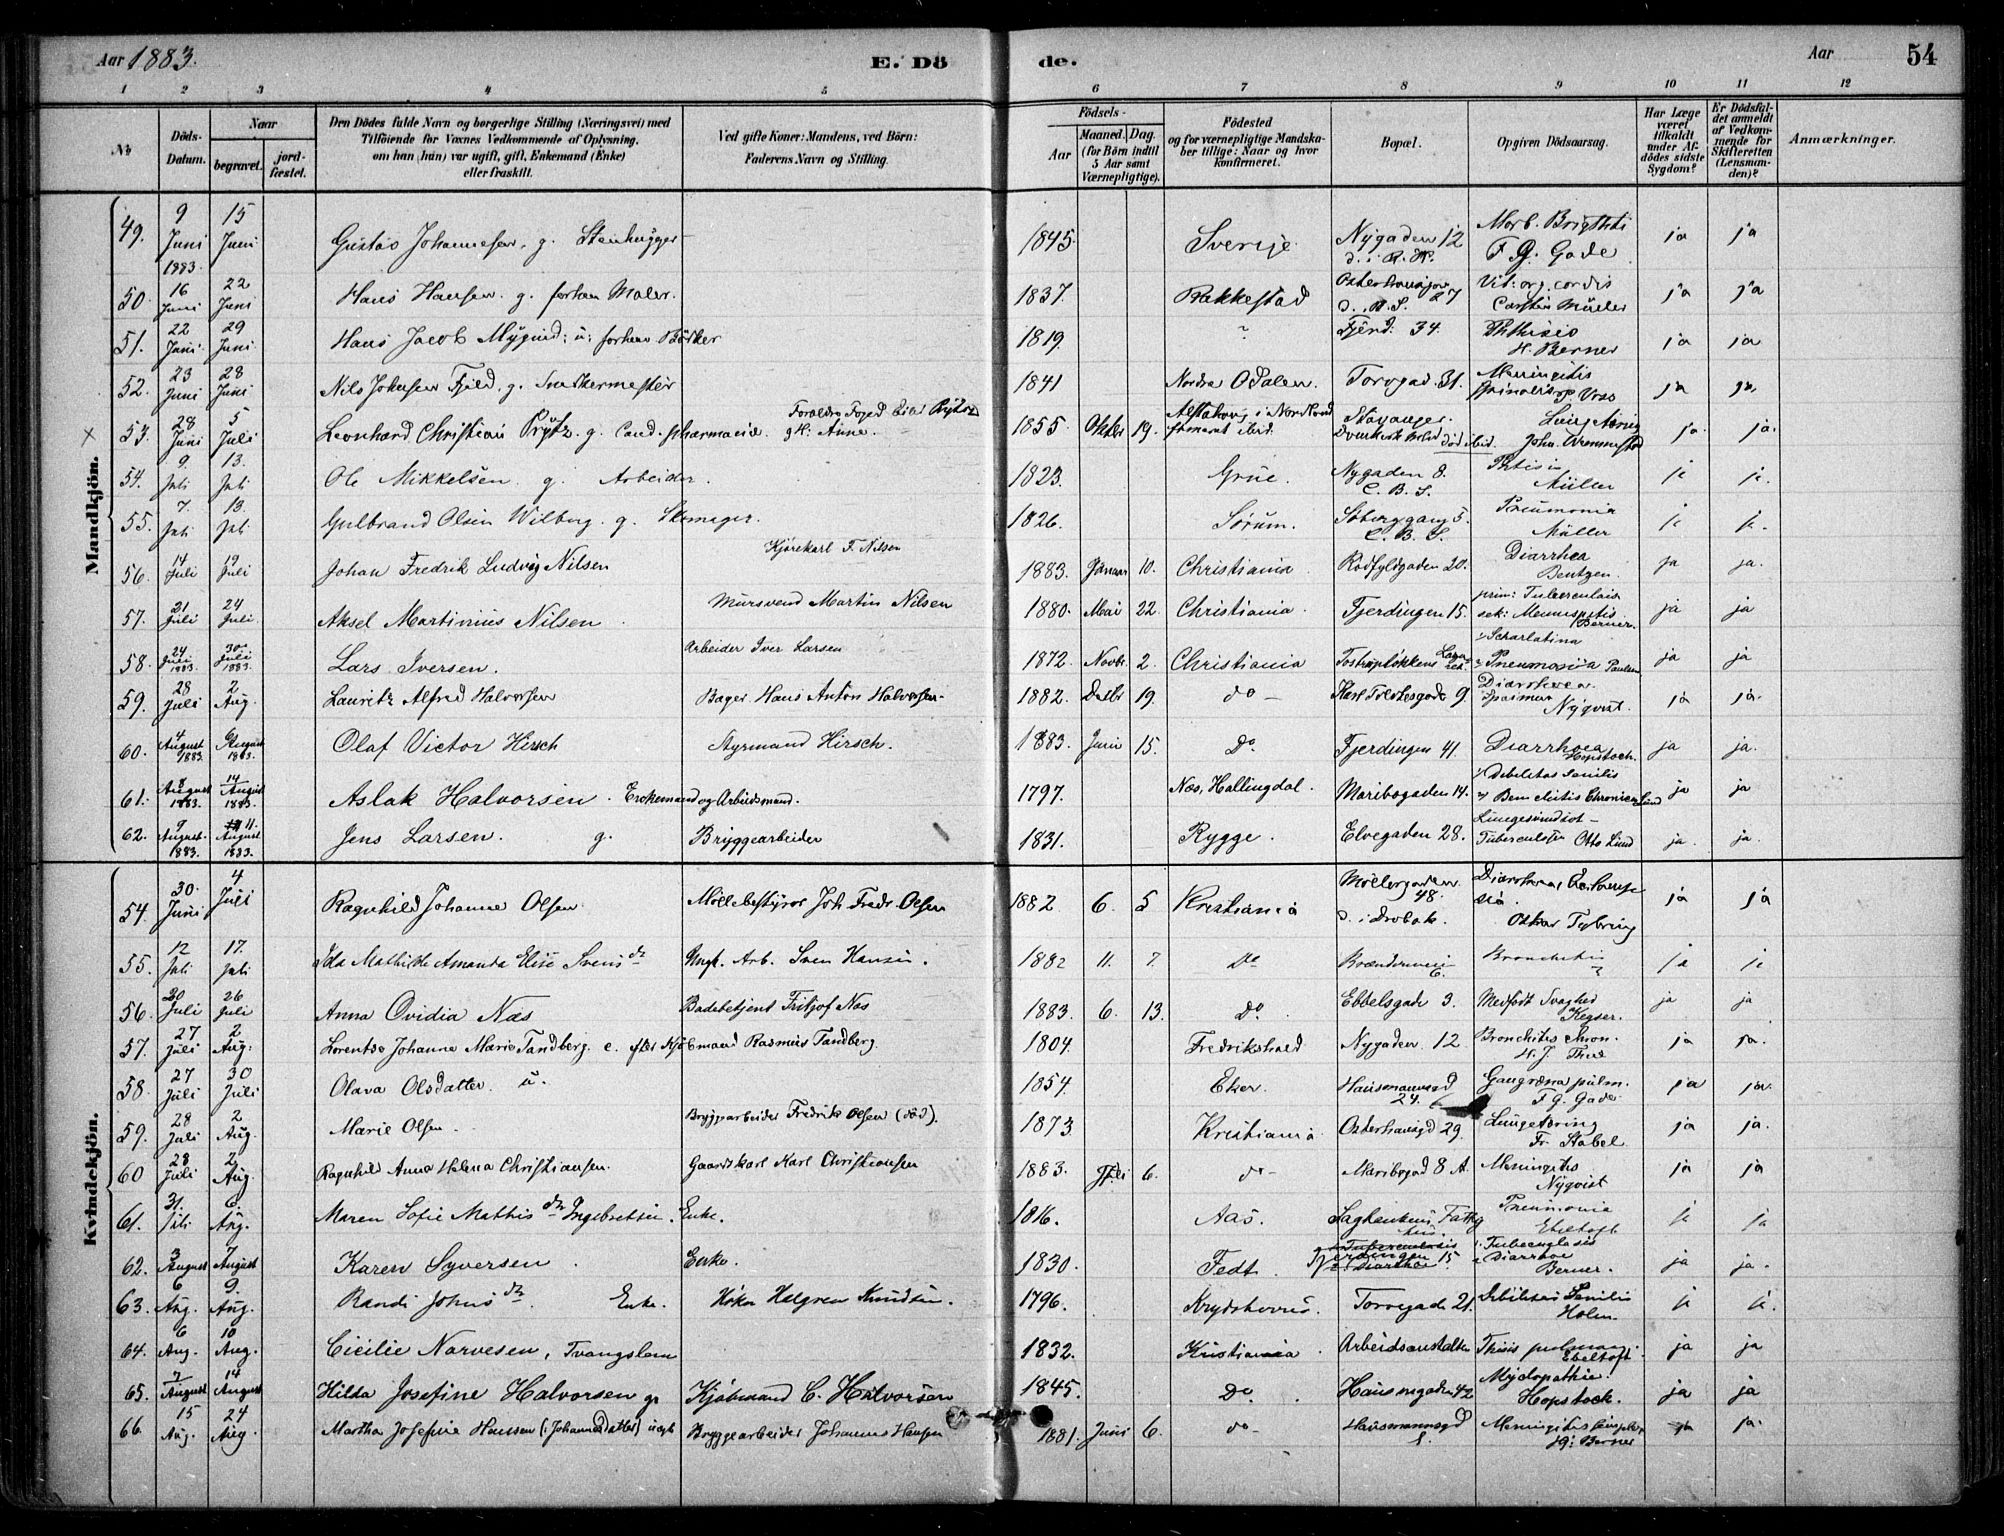 Aar 1883. E. Dö de. Aar 54
1 2 3 4 5 6 7 8 9 10 11 12
No Döds-Datum. Naar begravet. jordfæstet. Den Dödes fulde Navn og borgerlige Stilling (Næringsvei) med Tilföiende for Voxnes Vedkommende af Oplysning, om han (hun) var ugift, gift, Enkemand (Enke) eller fraskilt. Ved gifte Koner: Mandens, ved Börn: Faderens Navn og Stilling. Födsels- Aar Maaned. Dag. (for Börn indtil 5 Aar samt Værnepligtige). Födested og for værnepligtige Mandskaber tillige: Naar og hvor Konfirmeret. Bopæl. Opgiven Dödsaarsag. Har Læge været tilkaldt under Afdödes sidste Sygdom? Er Dödsfaldet anmeldt af Vedkommende for Skifteretten (Lensmanden)? Anmærkninger.
Mandkjön.
49. 9 Juni 1883. 15 Juni Gustav Johannesen, g. Stenhugger 1845. Sverige Nygaden 12 d. i. R. H. Morb. Brigthti F. G. Gade ja ja
50. 16 Juni 22 Juni Hans Hansen g. forhen Maler. 1837. Rakkestad 27 Vit: org. cordis Carsten Müller ja ja
51. 22 Juni 29 Juni Hans Jacob Mygind; u; forhen Bödker 1819. Fjerd: 34. Phthisis H. Berner ja ja
52. 23 Juni 28 Juni Nils Johnsen Fjeld, g. Snedkermester 1841 Nordre Odalen. Torvgad. 31. Meningitis spinalis ja ja
53. 28 Juni 5 Juli Leonhard Christian Prytz. g. Cand. pharmaciæ. Forældre Foged Eiler Prytz og H: Anne. 1855 Oktbr 19. Alstahoug i Nordland Stavanger ja ja
54. 9. Juli 13. Juli Ole Mikkelsen g. Arbeider 1823. Grue. Nygaden 8. C. B. S. Ptisis Müller ja ja
55. 7. Juli 13. Juli Gulbrand Olsen Wilberg. g. Skomager. 1826. Sørum. Søberggang 5. C. B. S. Pneumonia Müller ja ja
56. 14 Juli 19 Juli Johan Fredrik Ludvig Nilsen Kjørekarl F. Nilsen 1883. Januar 10. Christiania. Rødfyldgaden 20. Diarrhea Bentzen. ja ja
57. 21 Juli 24 Juli. Aksel Martinius Nilsen Mursvend Martin Nilsen 1880. Mai 22. Christiania. Fjerdingen 15. prim: Tuberculosis sek: Berner. ja ja
58. 24 Juli 1883. 30. Juli 1883. Lars Iversen. Arbeider Iver Larsen 1872. Novbr. 2. Christiania Tostrupløkkens Scharlatina Pneumonia Paulsen ja ja
59. 28 Juli 2 Aug. Lauritz Alfred Halversen Bager Hans Anton Halversen 1882. Decbr 19. do Karl Nyqvist. ja ja
60. 4 August 1883. 6 August 1883. Olaf Victor Hirsch Styrmand Hirsch. 1883. Juni 15. Do Fjerdingen 41. Diarrhoea Hopstock. ja ja.
61. 8 August 1883. 14 August 1883. Aslak Halvorsen. Enkemand og Arbeidsmand. 1797. Næs, Hallingdal. Maribogaden 14. 1) Debilitas Senilis 2) Chronica Lund ja ja
62. 9 August. 1883. 11. August 1883. Jens Larsen. g. Bryggearbeider 1831. Rygge. Elvegaden 28. Tuberculøse Otto Lund ja. ja.
Kvindekjön.
54. 30. Juni 4 Juli Ragnhild Johanne Olsen Möllebestyrer Joh. Fredr. Olsen 1882 6. 5 Kristiania Möllergaden 48. d. i Drøbak. Diarrhoea ja ja
55. 12 Juli 17. Juli Ida Mathilde Amanda Elise Svensdr Ungk. Arb. Sven Hansen. 1882 11. 7. Do Bronchitis ja ja
56. 20 Juli 26 Juli Anna Ovidia Næs Badebetjent Fritjof Næs 1883. 6. 13. Do. Ebbelsgade 3. Medfødt Svaghed Keyser. ja ja
57. 27 Juli 2 Aug. Lorentse Johanne Marie Tandberg. e. efter Kjøbmand Rasmus Tandberg. 1804. Fredrikshald Nygaden 12 Bronchitis chron. ja ja.
58. 27 Juli 30 Juli Olava Olsdatter. u. 1854. Eker. Hausmannsgd 24. Gangræna pulm. F. G. Gade ja ja.
59. 28 Juli 2 Aug. Marie Olsen. Bryggearbeider Fredrik Olsen (död). 1873 Kristiania Osterhausgd 29. Lungetæring Fr. Stabel ja ja.
60 28 Juli 2 Aug. Ragnhild Anna Helena Christiansen. Gaardskarl Karl Christiansen 1883. 6. do Maribogad 8 A. Meningitis Nyqvist ja ja
61. 31. Juli 6. Aug. Maren Sofie Mathisdr Ingebretsen Enke. 1816. Aas. Saghaukens Fattighus Pneumonia Ebeltoft ja ja
62. 3 August 7 August Karen Syversen. Enke. 1830. Fedt. Fjerdingen 15. 1. Tuberculosis 2 Diarrhoe Berner. ja ja.
63. 6 Aug. 9. Aug. Randi Johnsdr. Enke. Høker Halgren Knudsen. 1796. Krydsherred. Torvegade 21. Debilitas Senilis Holm. ja ja.
64. 6 Aug. 10 Aug. Cicilie Narvesen, Tvangslem 1832. Kristiania Arbeidsanstalten Ebeltoft ja ja
65. 7 August 14 August Hilda Josefine Halvorsen g. Kjøbmand C. Halvorsen 1845. Do. Hausmgaden 42 Myelopathie. Hopstock. ja ja
66. 15 Aug. 24 Aug. Martha Josefine Hanssen (Johannesdatter) Bryggearbeider Johannes Hansen 1881. Juni 6. do Hausmannsgd Berner ja ja.